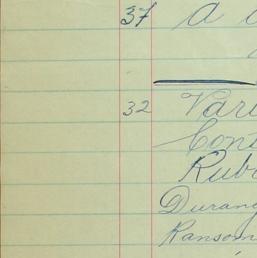 37 a
32 Vari
Cont
Rub
Durang
Ransom